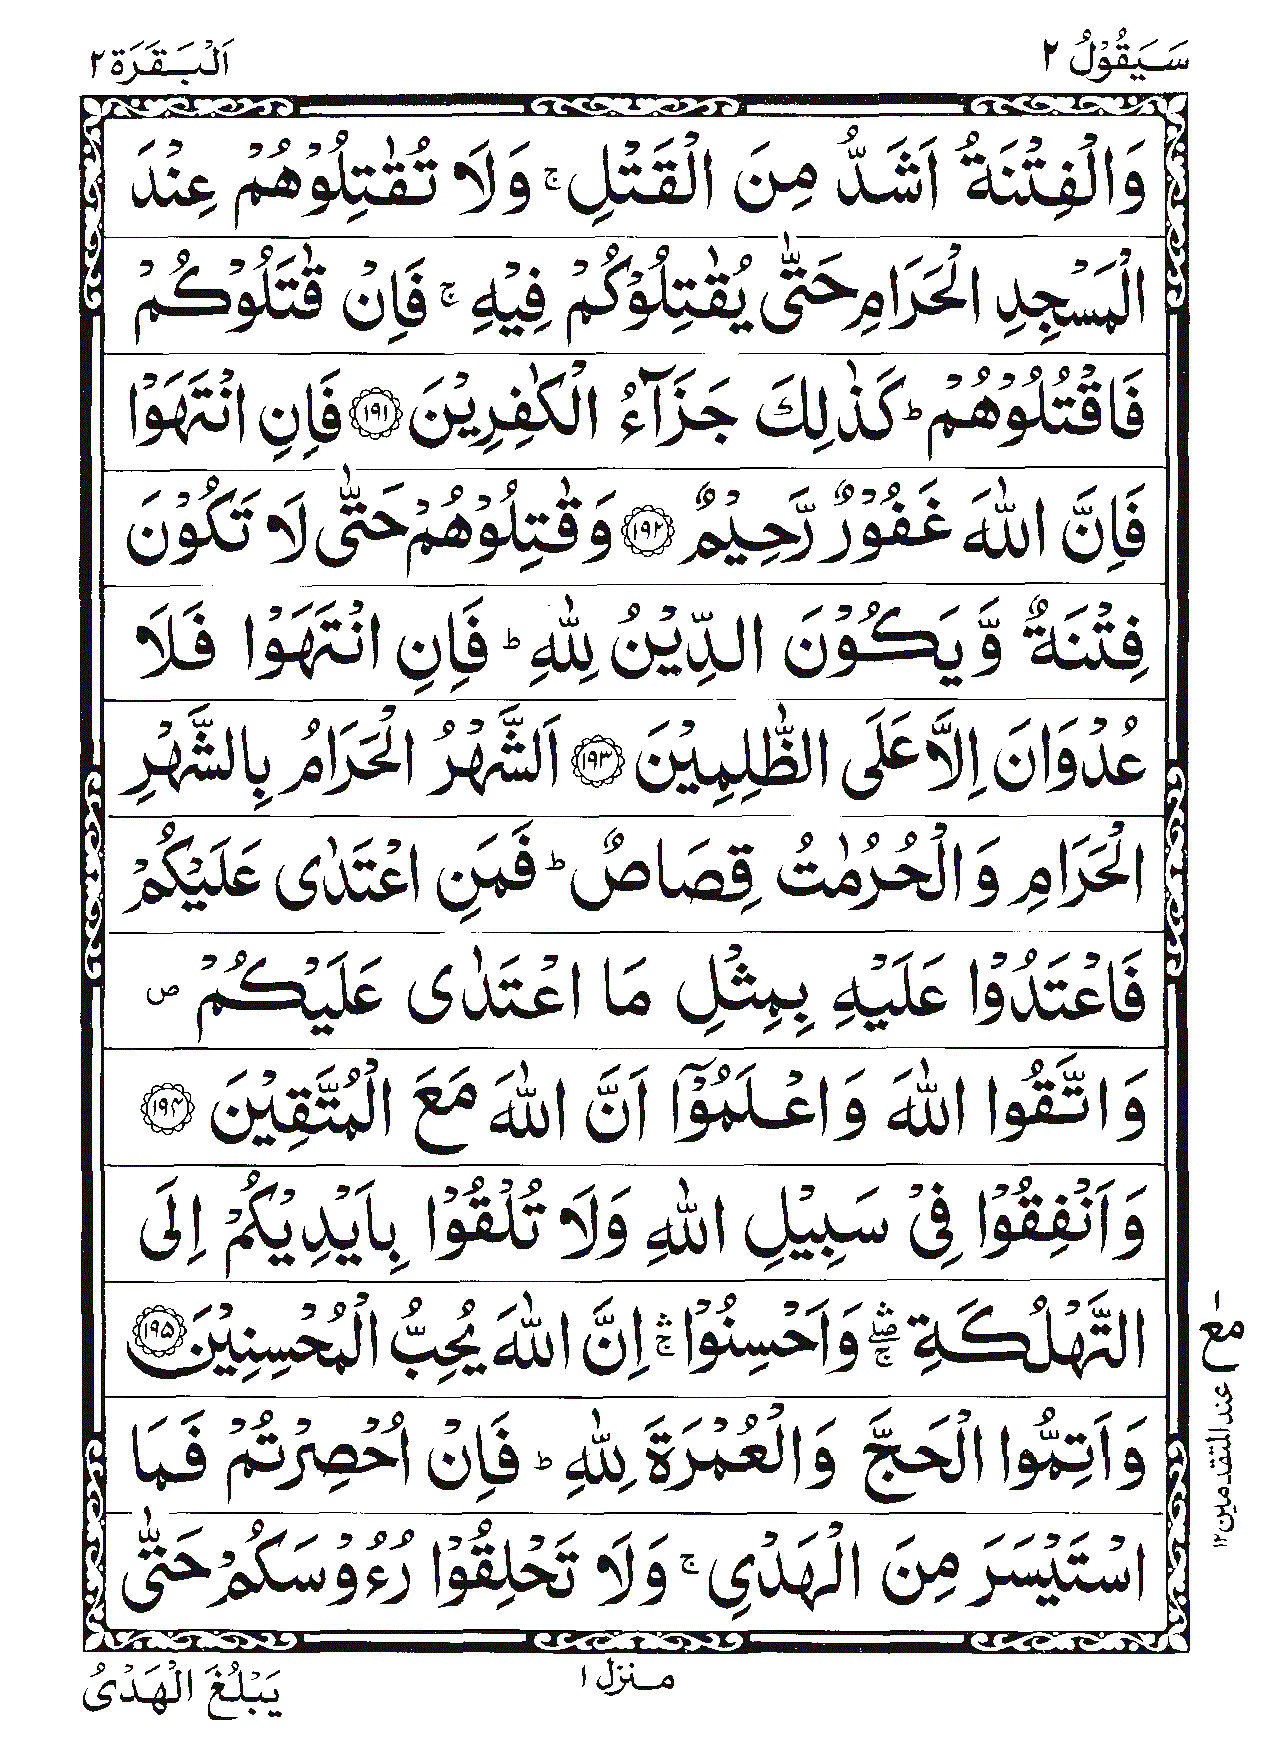 سَيَقُوْلُ ٢
اَلْبَقَرَة ٢
وَالْفِتْنَةُ اَشَدُّ مِنَ الْقَتْلِ ۚ وَلَا تُقٰتِلُوْهُمْ عِنْدَ
الْمَسْجِدِ الْحَرَامِ حَتّٰى يُقٰتِلُوْكُمْ فِيْهِ ۚ فَاِنْ قٰتَلُوْكُمْ
فَاقْتُلُوْهُمْ ؕ كَذٰلِكَ جَزَآءُ الْكٰفِرِيْنَ ﴿١٩١﴾ فَاِنِ انْتَهَوْا
فَاِنَّ اللّٰهَ غَفُوْرٌ رَّحِيْمٌ ﴿١٩٢﴾ وَقٰتِلُوْهُمْ حَتّٰى لَا تَكُوْنَ
فِتْنَةٌ وَّيَكُوْنَ الدِّيْنُ لِلّٰهِ ؕ فَاِنِ انْتَهَوْا فَلَا
عُدْوَانَ اِلَّا عَلَى الظّٰلِمِيْنَ ﴿١٩٣﴾ اَلشَّهْرُ الْحَرَامُ بِالشَّهْرِ
الْحَرَامِ وَالْحُرُمٰتُ قِصَاصٌ ؕ فَمَنِ اعْتَدٰى عَلَيْكُمْ
فَاعْتَدُوْا عَلَيْهِ بِمِثْلِ مَا اعْتَدٰى عَلَيْكُمْ ص
وَاتَّقُوا اللّٰهَ وَاعْلَمُوْٓا اَنَّ اللّٰهَ مَعَ الْمُتَّقِيْنَ ﴿١٩٤﴾
وَاَنْفِقُوْا فِىْ سَبِيْلِ اللّٰهِ وَلَا تُلْقُوْا بِاَيْدِيْكُمْ اِلَى
التَّهْلُكَةِ ۖۚ وَاَحْسِنُوْا ۚۛ اِنَّ اللّٰهَ يُحِبُّ الْمُحْسِنِيْنَ ﴿١٩٥﴾
وَاَتِمُّوا الْحَجَّ وَالْعُمْرَةَ لِلّٰهِ ؕ فَاِنْ اُحْصِرْتُمْ فَمَا
اسْتَيْسَرَ مِنَ الْهَدْىِ ۚ وَلَا تَحْلِقُوْا رُءُوْسَكُمْ حَتّٰى
مع
عند المتقدمين ١٢
منزل ١
يَبْلُغَ الْهَدْىُ